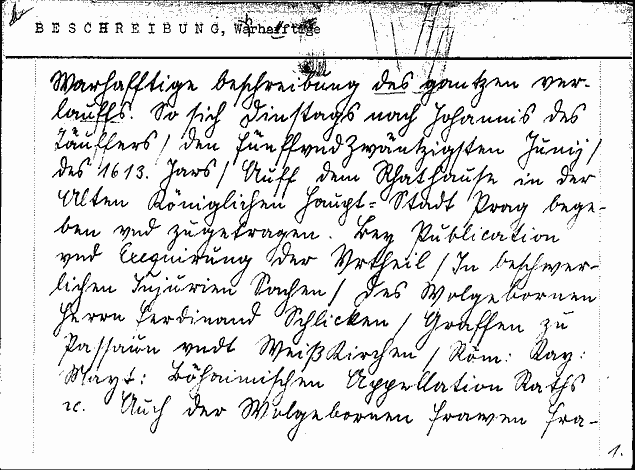 BESCHREIBUNG, Warhafftige
Warhafftige beschreibung des gantzen ver-
lauffs. So sich Dinstags nach Johannis des
Täuffers / den fünffvndzwäntzigsten Junij /
des 1613. Jars / Auff dem Rhathause in der
Alten Königlichen Haupt= Stadt Prag bege-
ben vnd zugetragen. Bey Publication
vnd Exequirung der Vrtheil / In beschwer-
lichen Injurien Sachen / Des Wolgebornen
Herrn Ferdinand Schlicken / Graffen zu
Passaun vndt Weißkirchen / Röm: Kay:
Mayt: Böhaimischen Appellation Raths
ec. Auch der Wolgebornen Frawen Fra-
1.